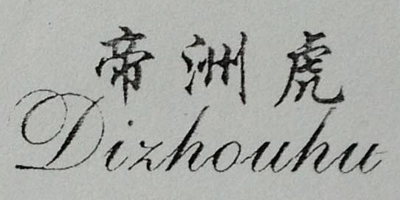 帝洲虎
Dizhouhu